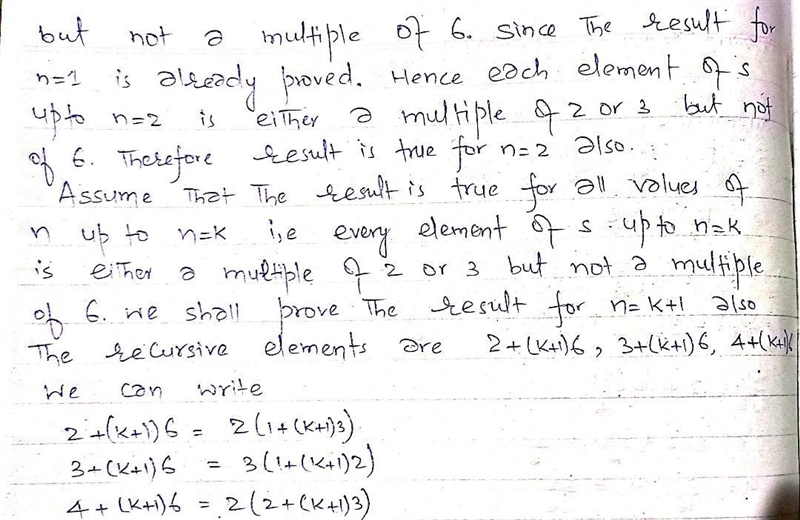 but not a multiple of 6. Since The result for
n=1 is already proved. Hence each element of s
upto n=2 is either a multiple of 2 or 3 but not
of 6. Therefore result is true for n=2 also.
Assume That The result is true for all values of
n up to n=k i,e every element of s up to n=k
is either a multiple of 2 or 3 but not a multiple
of 6. we shall prove The result for n=k+1 also
The recursive elements are 2+(k+1)6, 3+(k+1)6, 4+(k+1)6
We can write
2+(k+1)6 = 2(1+(k+1)3)
3+(k+1)6 = 3(1+(k+1)2)
4+(k+1)6 = 2(2+(k+1)3)